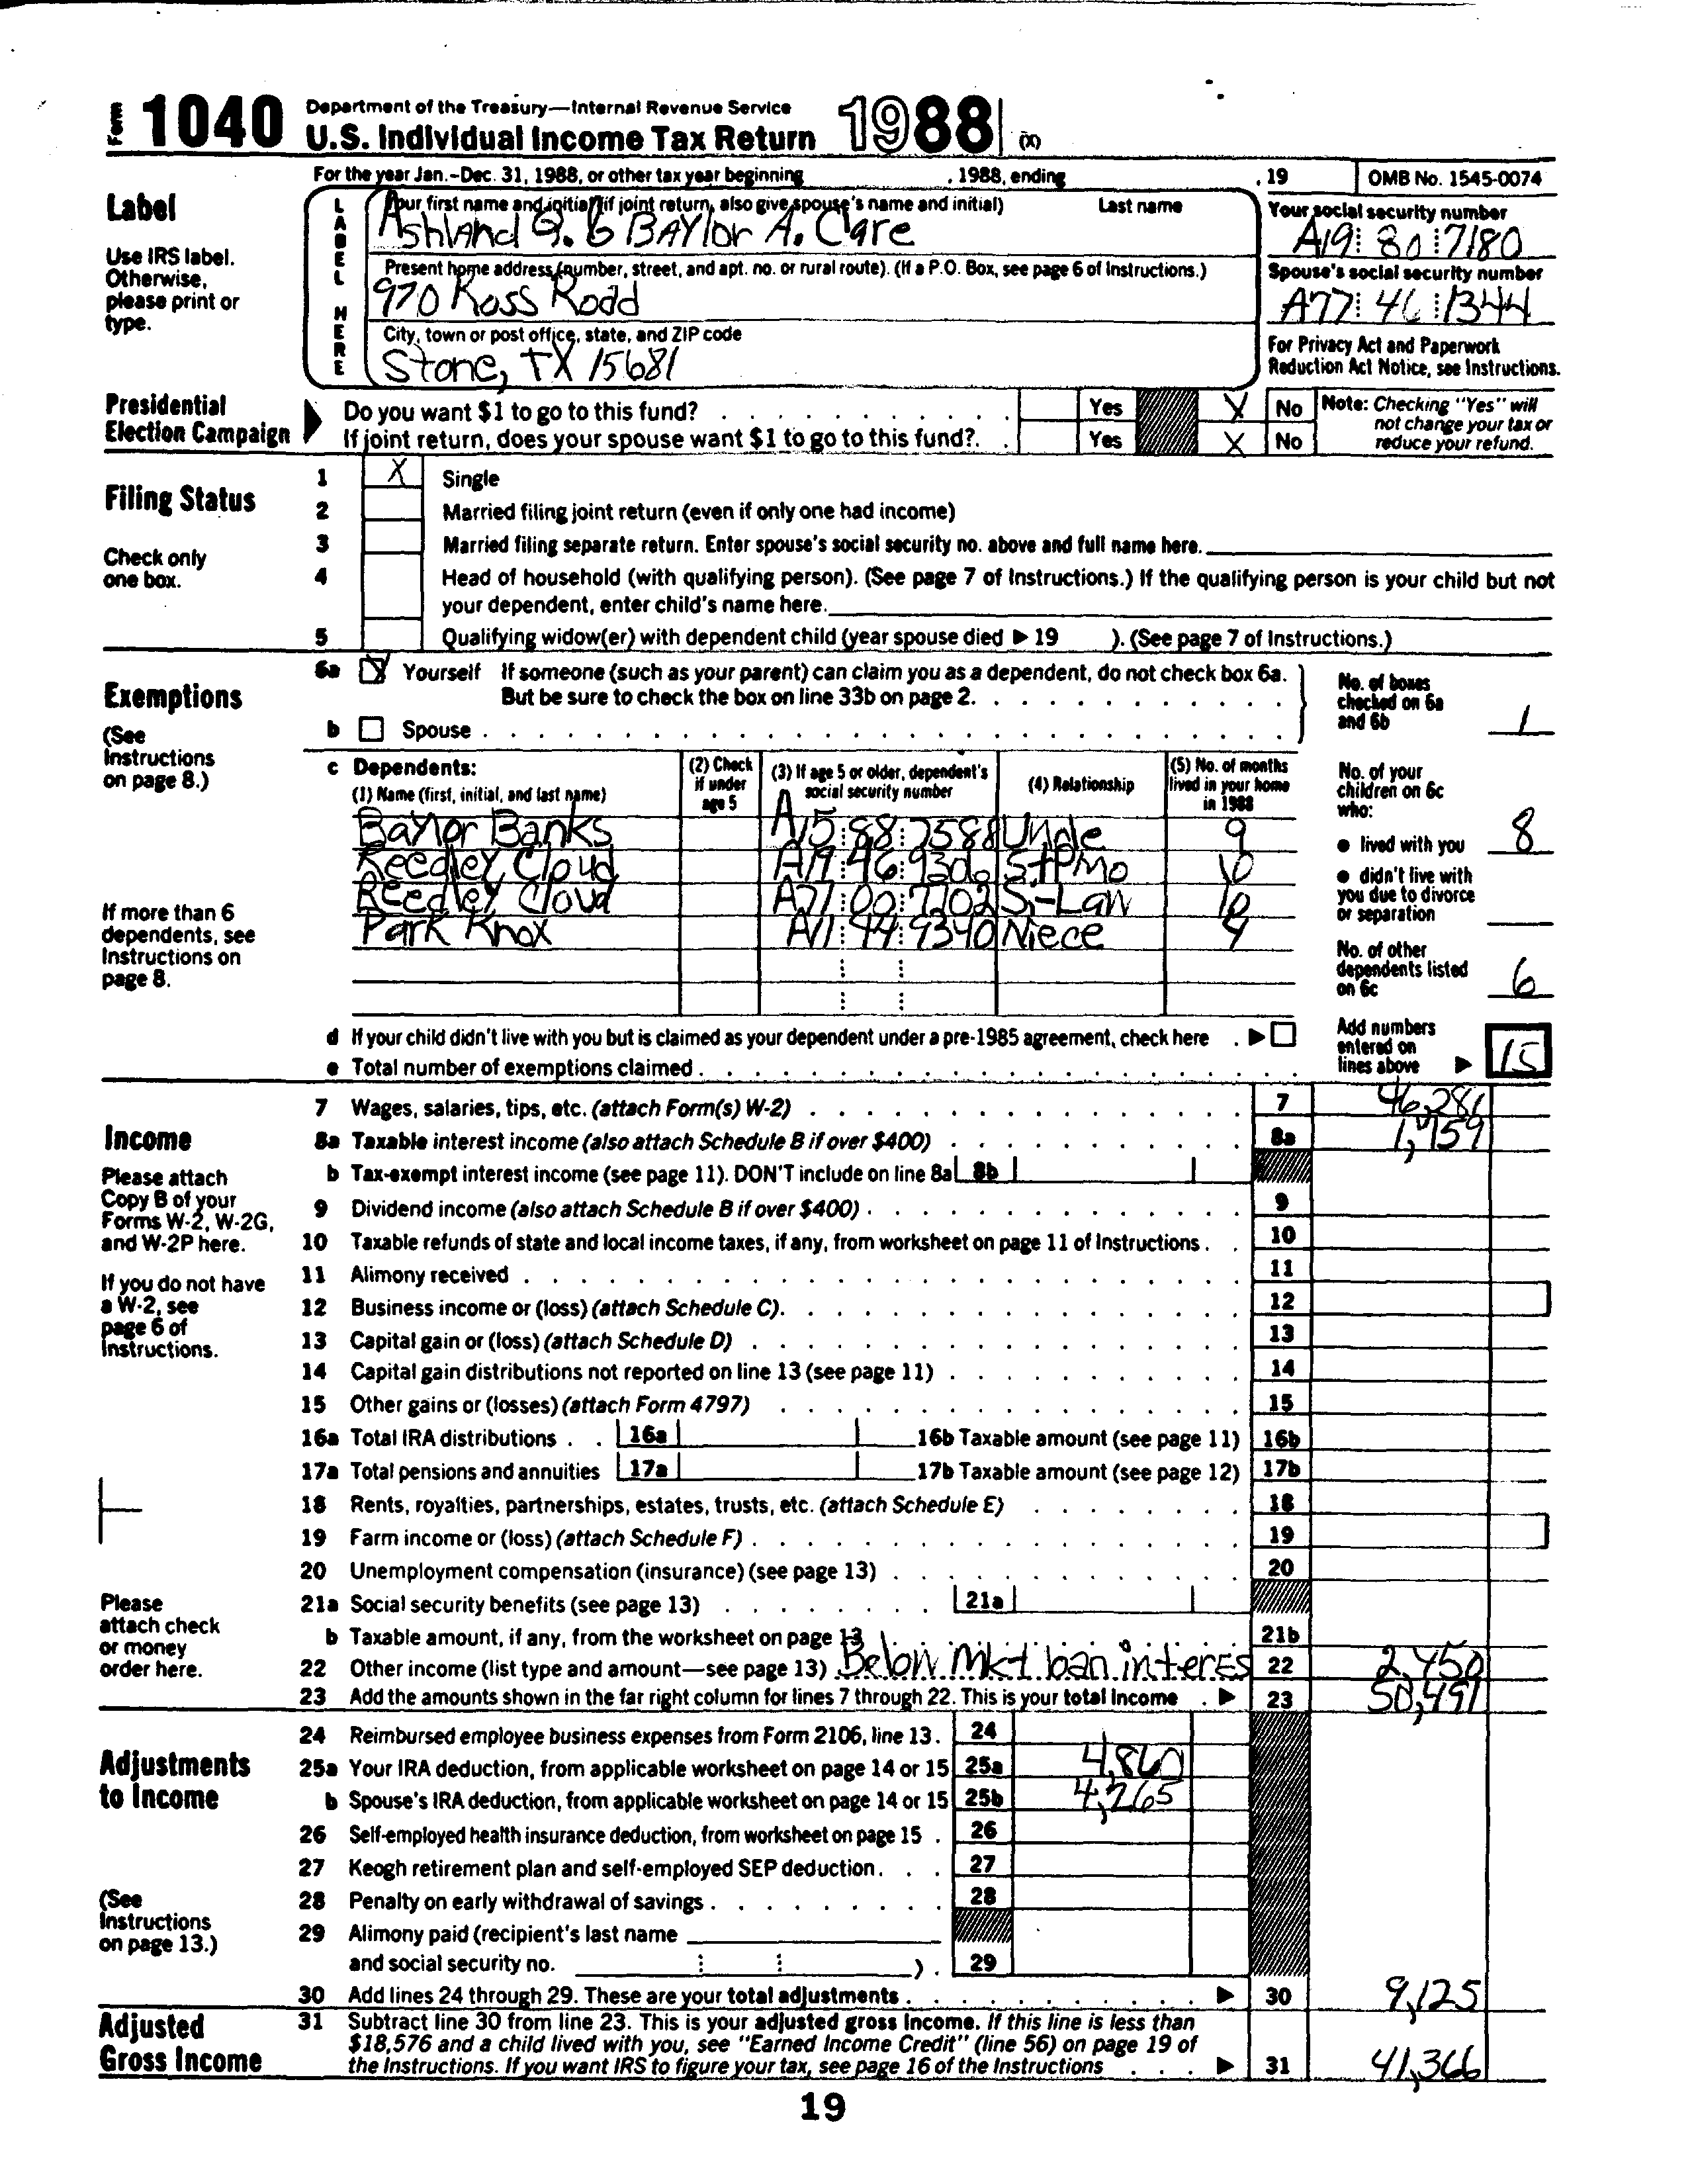 Form 1040 Department of the Treasury—Internal Revenue Service
U.S. Individual Income Tax Return 1988 (X)
For the year Jan.–Dec. 31, 1988, or other tax year beginning , 1988, ending , 19 OMB No. 1545-0074
Label
Use IRS label.
Otherwise,
please print or
type.
LABEL HERE
Your first name and initial (if joint return, also give spouse's name and initial) Last name
Ashland Q. & BAYlor A. Care
Your social security number
A19 80 7180
Present home address (number, street, and apt. no. or rural route). (If a P.O. Box, see page 6 of Instructions.)
970 Ross Road
Spouse's social security number
A77 46 1344
City, town or post office, state, and ZIP code
Stone, TX 15681
For Privacy Act and Paperwork
Reduction Act Notice, see Instructions.
Presidential
Election Campaign
Do you want $1 to go to this fund? Yes X No
If joint return, does your spouse want $1 to go to this fund?. Yes X No
Note: Checking "Yes" will
not change your tax or
reduce your refund.
Filing Status
Check only
one box.
1 X Single
2 Married filing joint return (even if only one had income)
3 Married filing separate return. Enter spouse's social security no. above and full name here.
4 Head of household (with qualifying person). (See page 7 of Instructions.) If the qualifying person is your child but not
your dependent, enter child's name here.
5 Qualifying widow(er) with dependent child (year spouse died ▶ 19 ). (See page 7 of Instructions.)
Exemptions
(See
Instructions
on page 8.)
If more than 6
dependents, see
Instructions on
page 8.
6a X Yourself If someone (such as your parent) can claim you as a dependent, do not check box 6a.
But be sure to check the box on line 33b on page 2.
b Spouse
No. of boxes
checked on 6a
and 6b 1
c Dependents:
(1) Name (first, initial, and last name)
(2) Check
if under
age 5
(3) If age 5 or older, dependent's
social security number
(4) Relationship
(5) No. of months
lived in your home
in 1988
Baylor Banks A15 88 7588 Uncle 9
Reedley Cloud StPMo 10
Reedley Cloud A71 00 7702 S.-Law 10
Park Knox A11 44 9340 Niece
No. of your
children on 6c
who:
● lived with you 8
● didn't live with
you due to divorce
or separation
No. of other
dependents listed
on 6c 6
d If your child didn't live with you but is claimed as your dependent under a pre-1985 agreement, check here ▶
e Total number of exemptions claimed
Add numbers
entered on
lines above ▶ 15
Income
Please attach
Copy B of your
Forms W-2, W-2G,
and W-2P here.
If you do not have
a W-2, see
page 6 of
Instructions.
Please
attach check
or money
order here.
7 Wages, salaries, tips, etc. (attach Form(s) W-2) 7 46,281
8a Taxable interest income (also attach Schedule B if over $400) 8a 1,759
b Tax-exempt interest income (see page 11). DON'T include on line 8a 8b
9 Dividend income (also attach Schedule B if over $400) 9
10 Taxable refunds of state and local income taxes, if any, from worksheet on page 11 of Instructions 10
11 Alimony received 11
12 Business income or (loss) (attach Schedule C). 12
13 Capital gain or (loss) (attach Schedule D) 13
14 Capital gain distributions not reported on line 13 (see page 11) 14
15 Other gains or (losses) (attach Form 4797) 15
16a Total IRA distributions 16a 16b Taxable amount (see page 11) 16b
17a Total pensions and annuities 17a 17b Taxable amount (see page 12) 17b
18 Rents, royalties, partnerships, estates, trusts, etc. (attach Schedule E) 18
19 Farm income or (loss) (attach Schedule F) 19
20 Unemployment compensation (insurance) (see page 13) 20
21a Social security benefits (see page 13) 21a
b Taxable amount, if any, from the worksheet on page 13 21b
22 Other income (list type and amount—see page 13) Below Mkt loan interes 22 2,450
23 Add the amounts shown in the far right column for lines 7 through 22. This is your total income ▶ 23 50,491
Adjustments
to Income
(See
Instructions
on page 13.)
24 Reimbursed employee business expenses from Form 2106, line 13. 24
25a Your IRA deduction, from applicable worksheet on page 14 or 15 25a 4,860
b Spouse's IRA deduction, from applicable worksheet on page 14 or 15 25b 4,265
26 Self-employed health insurance deduction, from worksheet on page 15 26
27 Keogh retirement plan and self-employed SEP deduction 27
28 Penalty on early withdrawal of savings 28
29 Alimony paid (recipient's last name
and social security no. ) 29
30 Add lines 24 through 29. These are your total adjustments ▶ 30 9,125
Adjusted
Gross Income
31 Subtract line 30 from line 23. This is your adjusted gross income. If this line is less than
$18,576 and a child lived with you, see "Earned Income Credit" (line 56) on page 19 of
the Instructions. If you want IRS to figure your tax, see page 16 of the Instructions ▶ 31 41,366
19